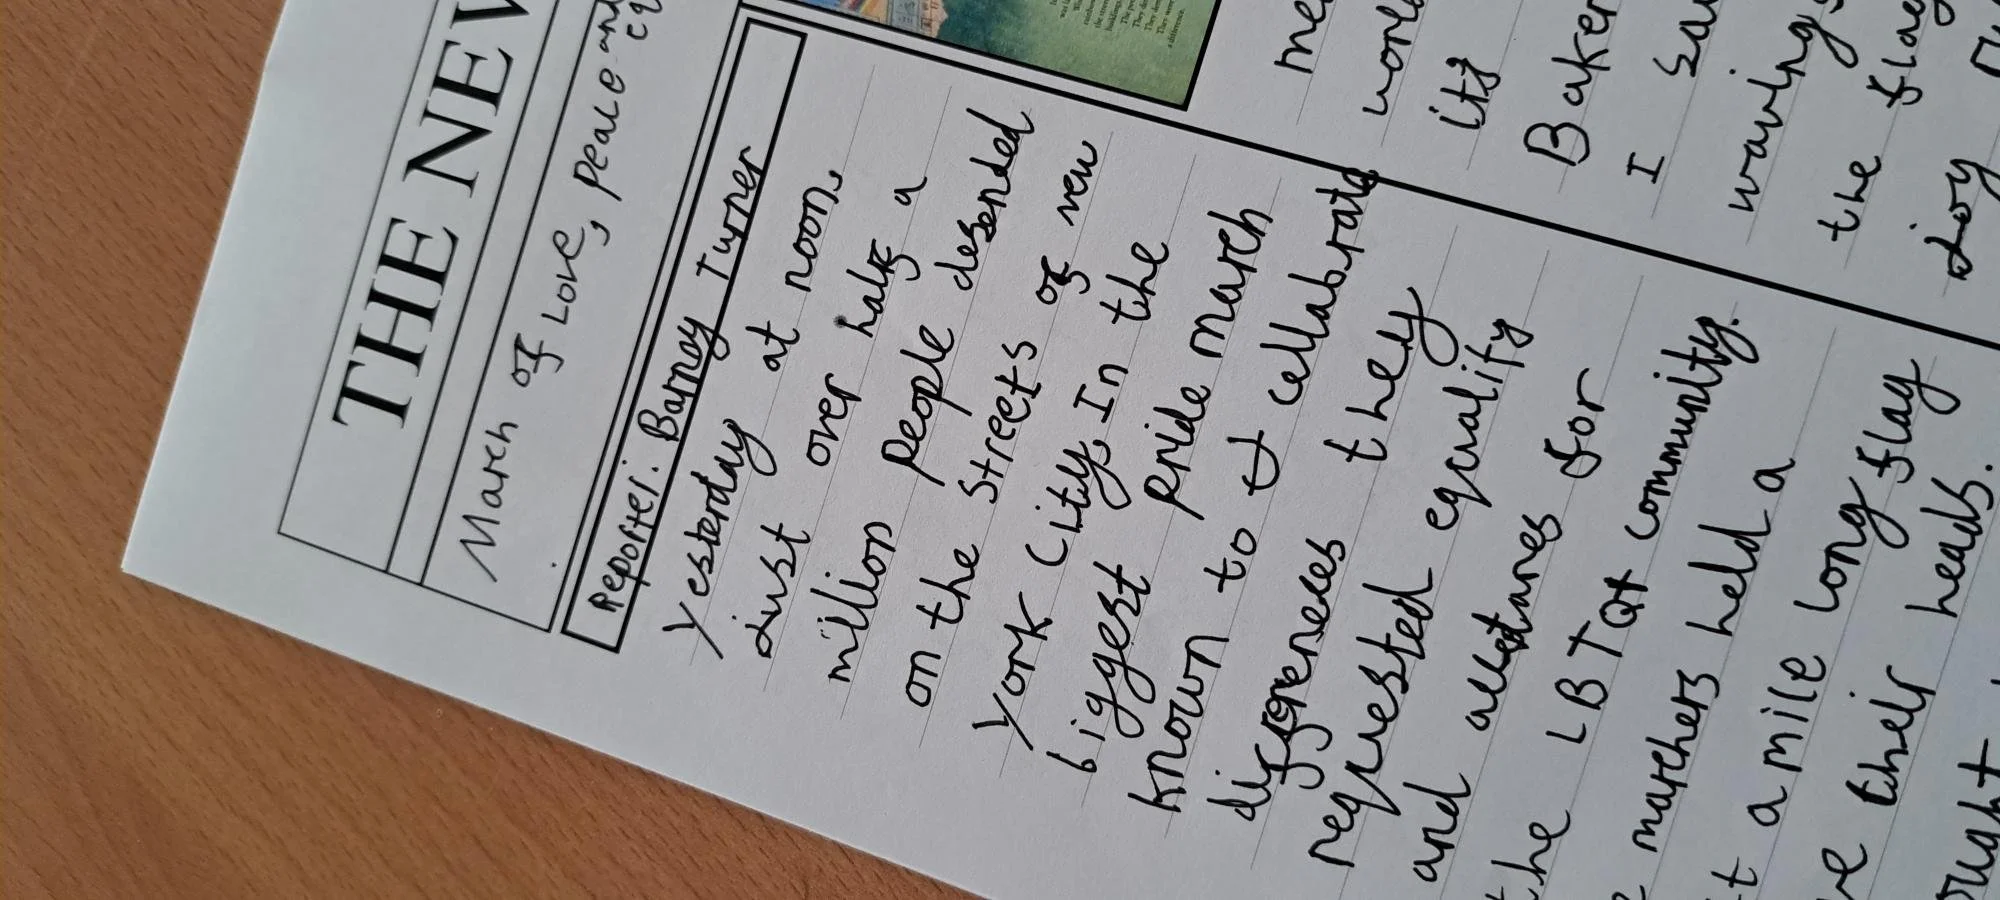 THE NEW
March of Love, peace and
Reporter: Barney Turner
Yesterday at noon,
Just over half a
million people desended
on the streets of new
york city, In the
biggest pride march
known to & cellabrate
differences they
requested equality
and alletanes for
the LBTQ+ community.
marchers held a
a mile long flag
their heads.
its
Baker
I
waving
the flag
Joy